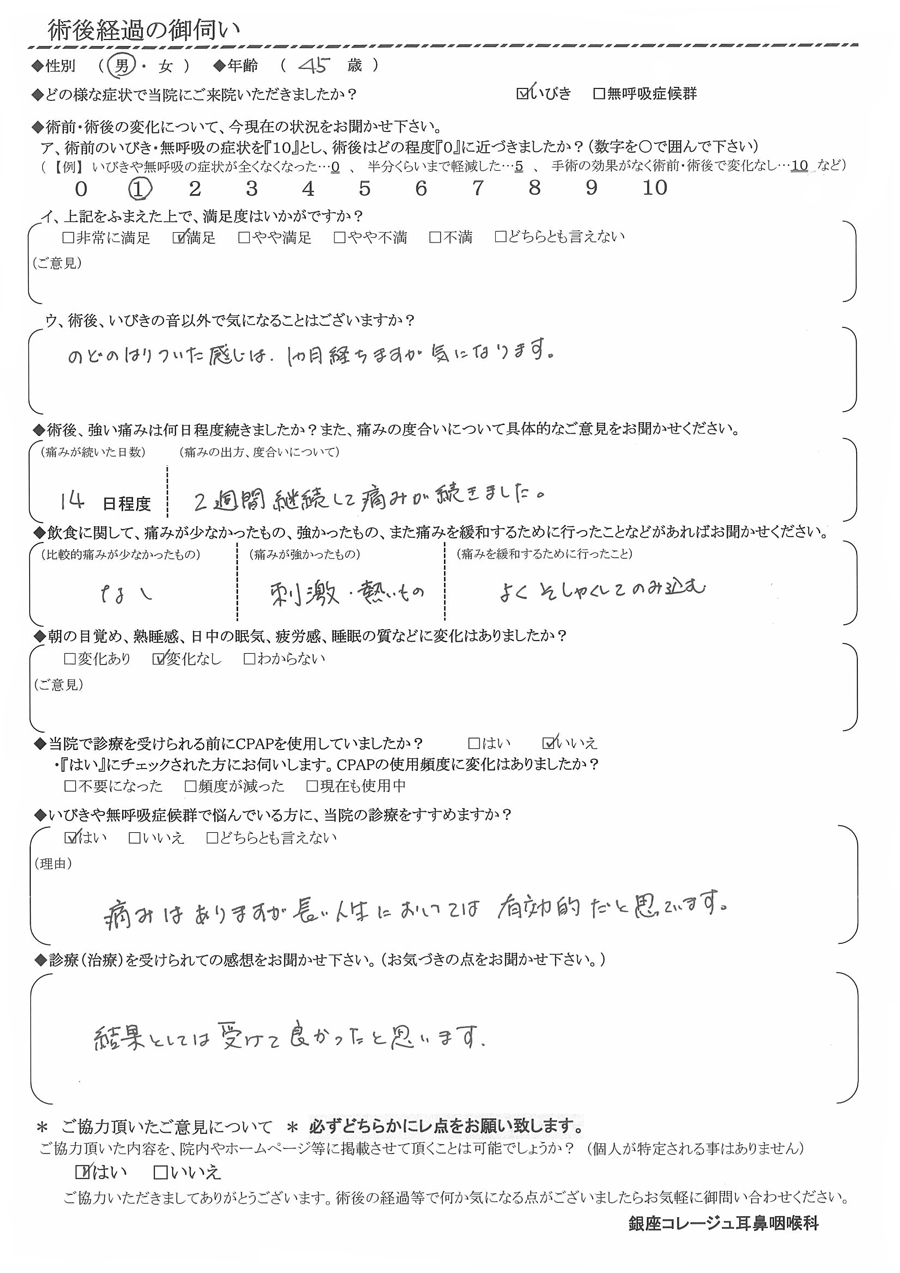 術後経過の御伺い
◆性別 ( 男 ・ 女 ) ◆年齢 ( 45 歳 )
◆どの様な症状で当院にご来院いただきましたか? ☑いびき ☐無呼吸症候群
◆術前・術後の変化について、今現在の状況をお聞かせ下さい。
ア、術前のいびき・無呼吸の症状を『10』とし、術後はどの程度『0』に近づきましたか?(数字を〇で囲んで下さい)
(【例】いびきや無呼吸の症状が全くなくなった…0 、 半分くらいまで軽減した…5 、 手術の効果がなく術前・術後で変化なし…10 など)
0 1 2 3 4 5 6 7 8 9 10
イ、上記をふまえた上で、満足度はいかがですか?
☐非常に満足 ☑満足 ☐やや満足 ☐やや不満 ☐不満 ☐どちらとも言えない
(ご意見)
ウ、術後、いびきの音以外で気になることはございますか?
のどのはりついた感じは、1ヵ月経ちますが気になります。
◆術後、強い痛みは何日程度続きましたか?また、痛みの度合いについて具体的なご意見をお聞かせください。
(痛みが続いた日数) (痛みの出方、度合いについて)
14 日程度 2週間継続して痛みが続きました。
◆飲食に関して、痛みが少なかったもの、強かったもの、また痛みを緩和するために行ったことなどがあればお聞かせください。
(比較的痛みが少なかったもの) (痛みが強かったもの) (痛みを緩和するために行ったこと)
なし 刺激・熱いもの よくそしゃくしてのみ込む
◆朝の目覚め、熟睡感、日中の眠気、疲労感、睡眠の質などに変化はありましたか?
☐変化あり ☑変化なし ☐わからない
(ご意見)
◆当院で診療を受けられる前にCPAPを使用していましたか? ☐はい ☑いいえ
・『はい』にチェックされた方にお伺いします。CPAPの使用頻度に変化はありましたか?
☐不要になった ☐頻度が減った ☐現在も使用中
◆いびきや無呼吸症候群で悩んでいる方に、当院の診療をすすめますか?
☑はい ☐いいえ ☐どちらとも言えない
(理由)
痛みはありますが長い人生においては有効的だと思っています。
◆診療(治療)を受けられての感想をお聞かせ下さい。(お気づきの点をお聞かせ下さい。)
結果としては受けて良かったと思います.
＊ ご協力頂いたご意見について ＊ 必ずどちらかにレ点をお願い致します。
ご協力頂いた内容を、院内やホームページ等に掲載させて頂くことは可能でしょうか? (個人が特定される事はありません)
☑はい ☐いいえ
ご協力いただきましてありがとうございます。術後の経過等で何か気になる点がございましたらお気軽に御問い合わせください。
銀座コレージュ耳鼻咽喉科